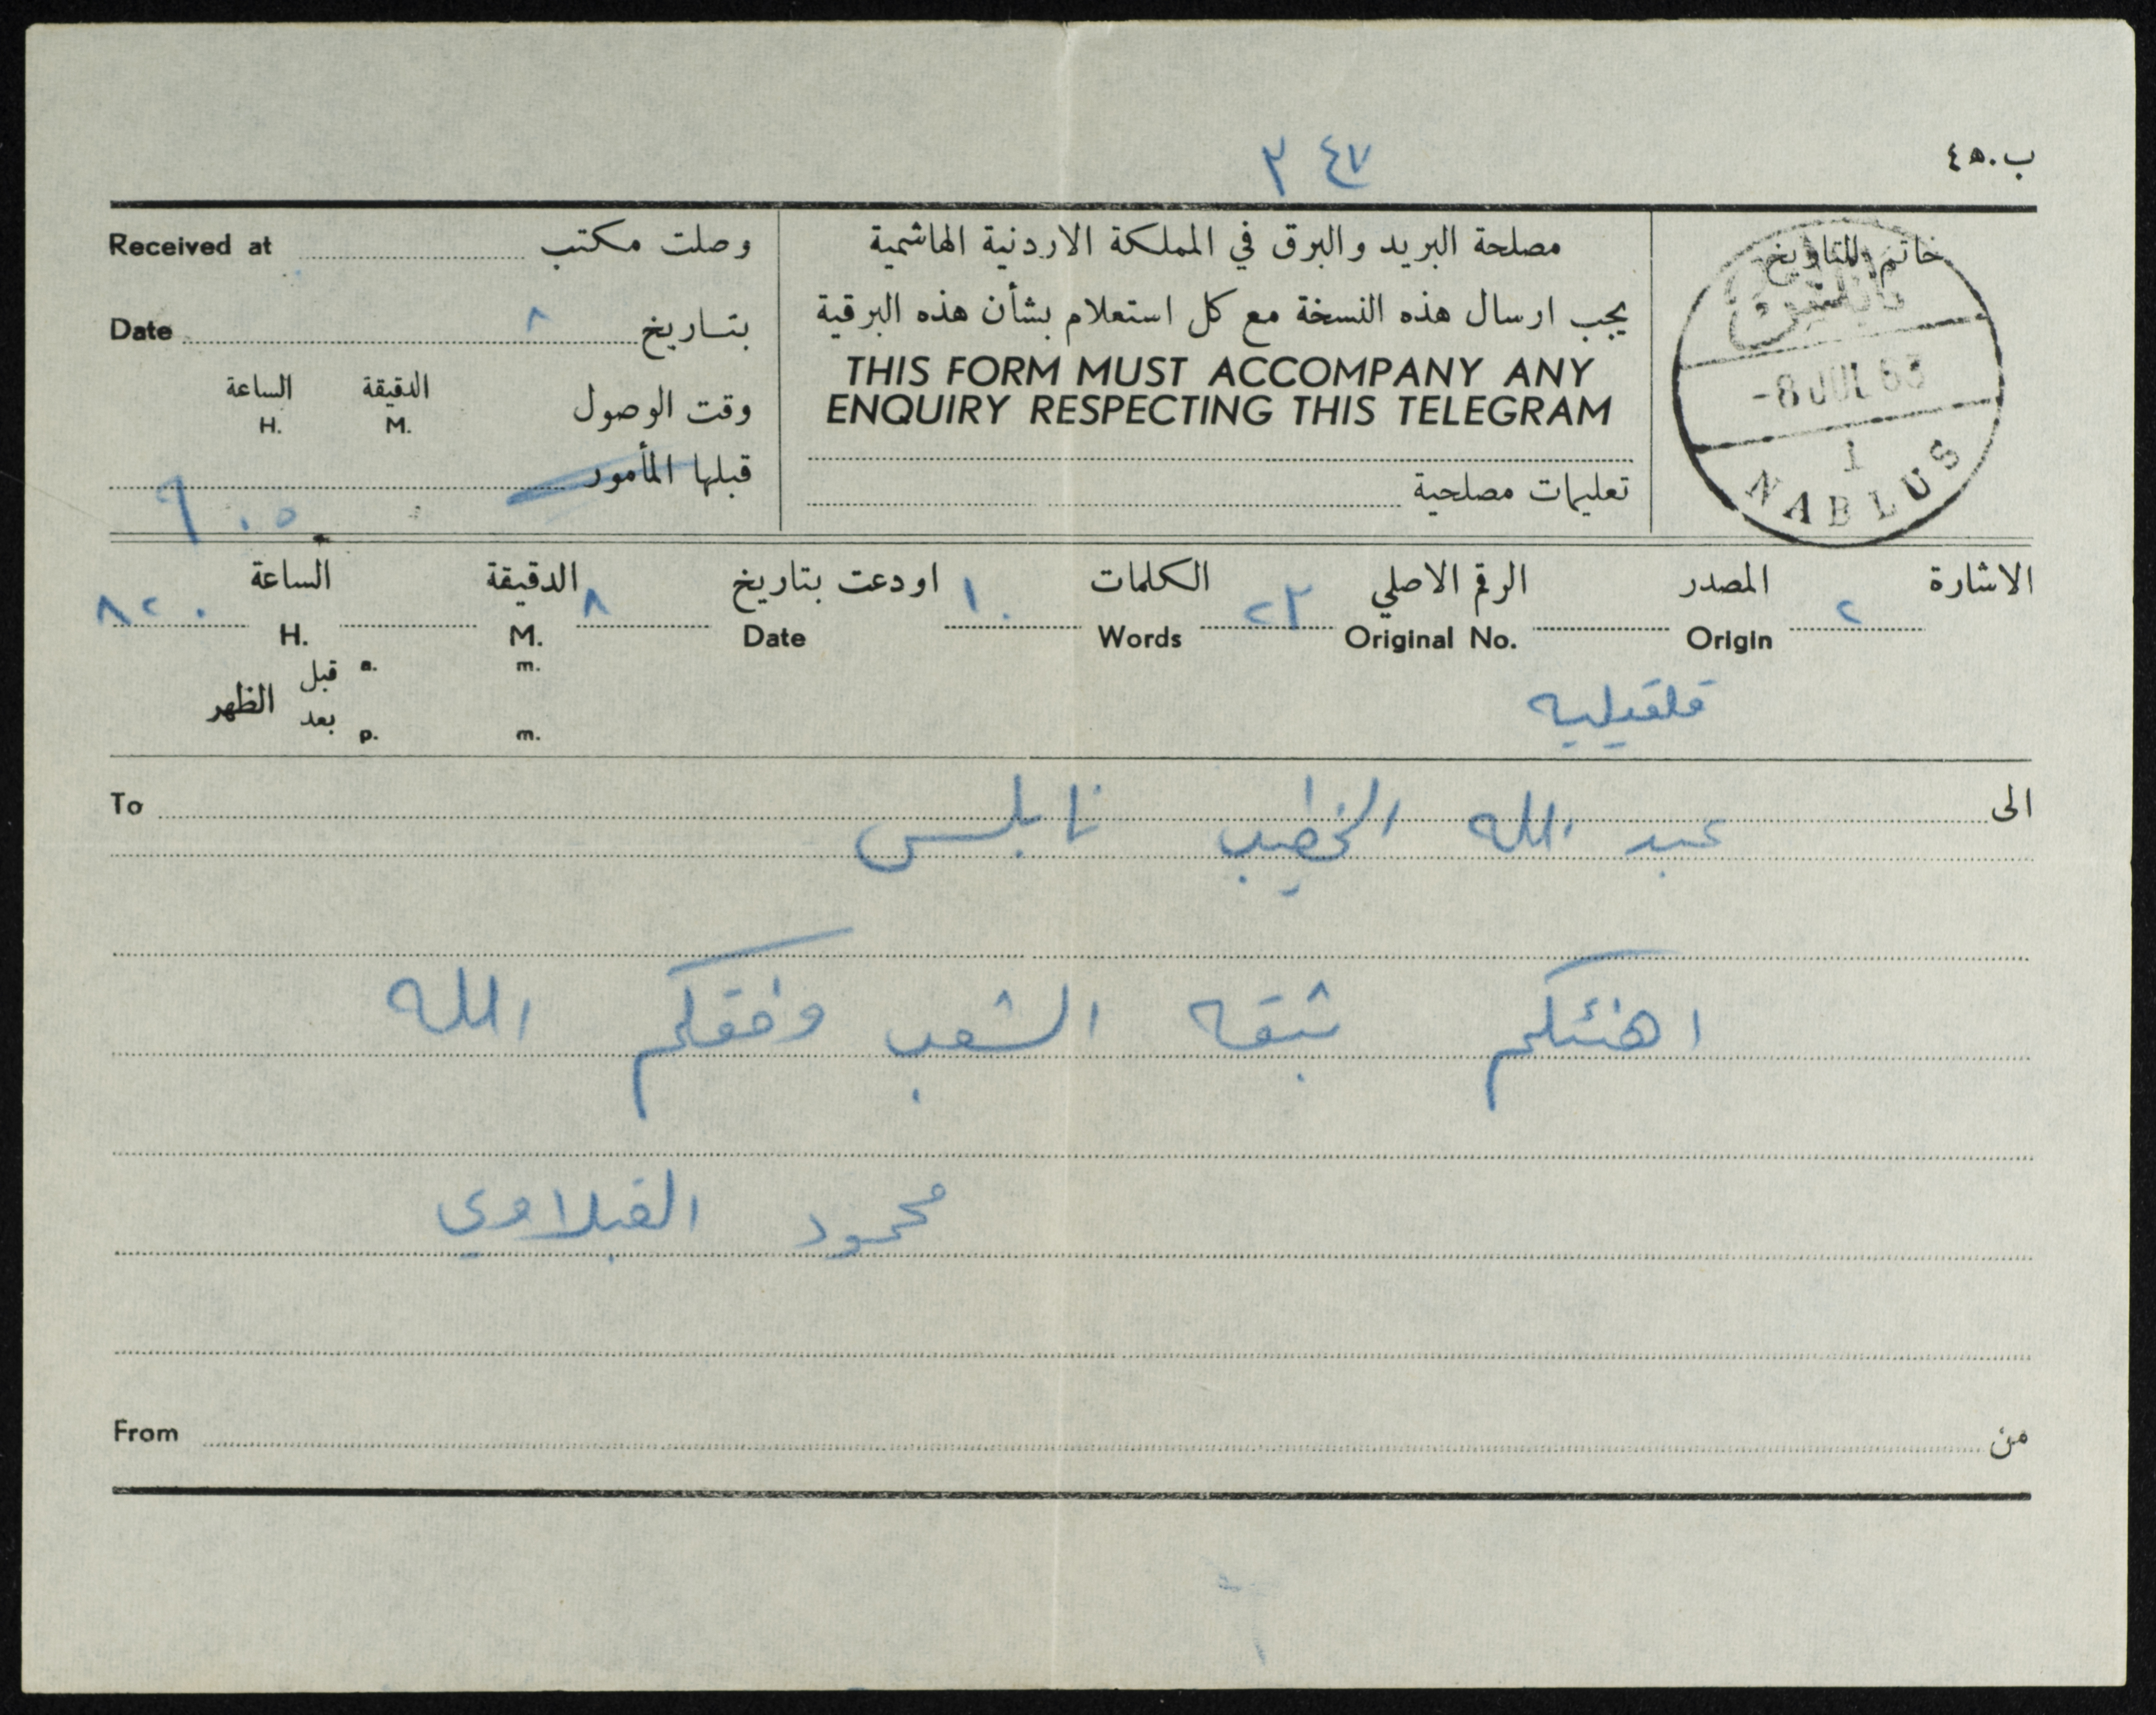 ب.٤٥
٢٤٧
خاتم التاريخ
نابلس
-8 JUL 63
1
NABLUS
مصلحة البريد والبرق في المملكة الاردنية الهاشمية
يجب ارسال هذه النسخة مع كل استعلام بشأن هذه البرقية
THIS FORM MUST ACCOMPANY ANY
ENQUIRY RESPECTING THIS TELEGRAM
تعليمات مصلحية
وصلت مكتب Received at
بتاريخ ٨ Date
وقت الوصول الدقيقة الساعة
M. H.
قبلها المأمور
٩٠٥
الاشارة المصدر الرقم الاصلي الكلمات اودعت بتاريخ الدقيقة الساعة
٢ Origin Original No. ٢٣ Words ١٠ Date ٨ M. H. ٨٢٠
قلقيليه
قبل a. m.
الظهر
بعد p. m.
الى عبد الله الخطيب نابلس To
اهنئكم بثقه الشعب وفقكم الله
محمود القبلاوي
من From